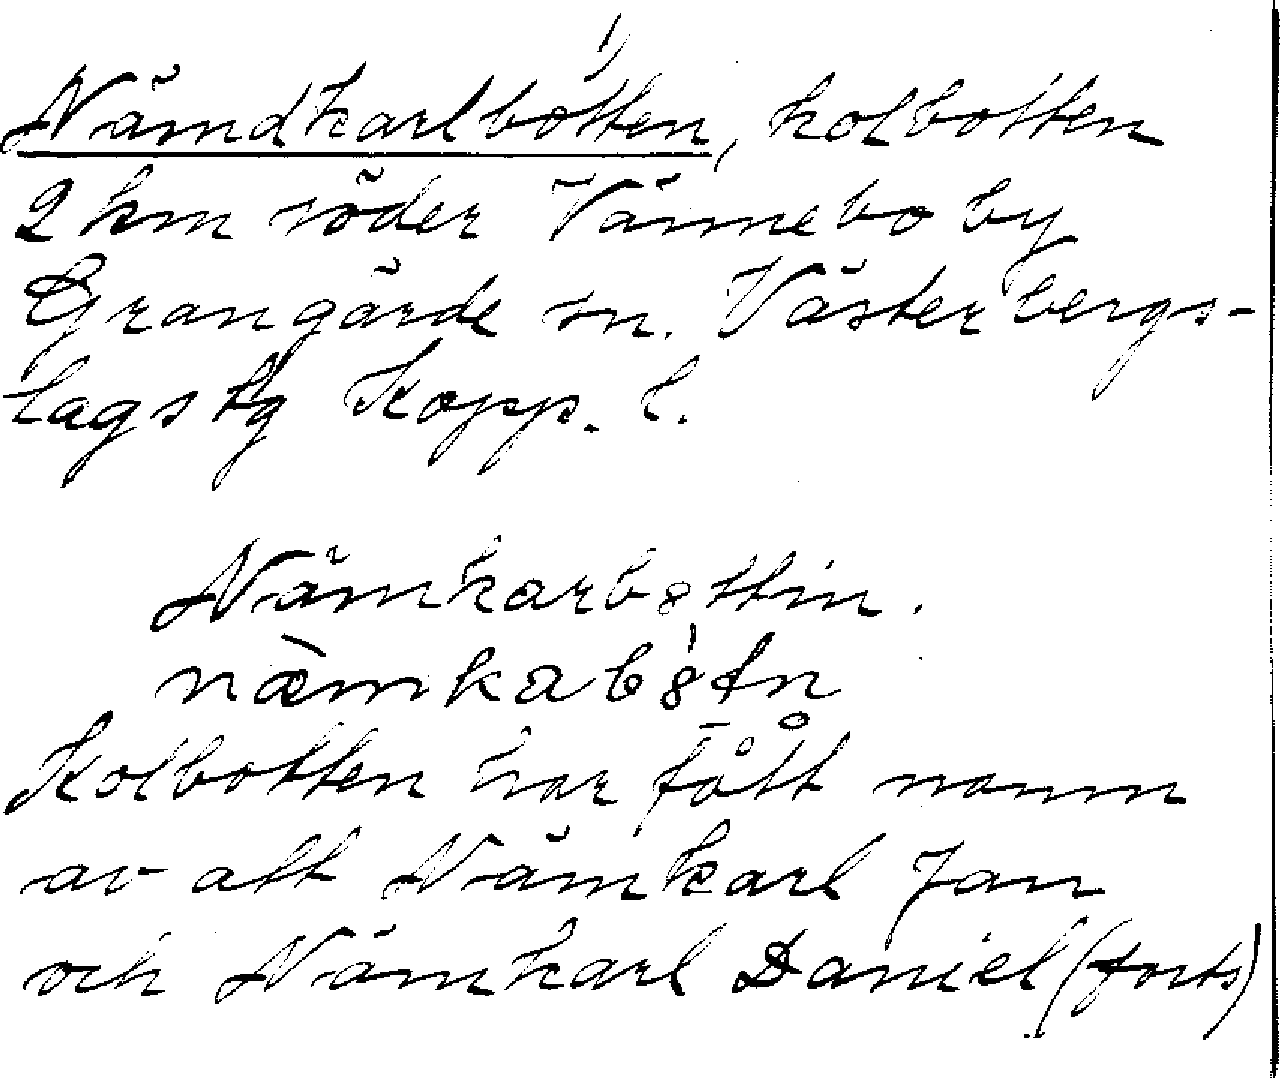 1)
Nämdkarlbotten, kolbotten
2 km söder Vännebo by
Grangärde sn. Västerbergs-
lags tg Kopp. l.
Nämkarbottin.
nämkab
Kolbotten har fått namn
av att Nämkarl Jan
och Nämkarl Daniel (forts)